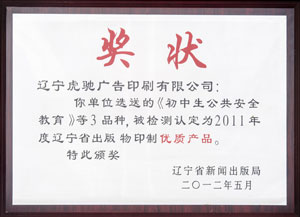 奖状
辽宁虎驰广告印刷有限公司：
你单位选送的《初中生公共安全
教育》等3品种，被检测认定为2011年
度辽宁省出版物印制优质产品。
特此颁奖
辽宁省新闻出版局
二〇一二年五月